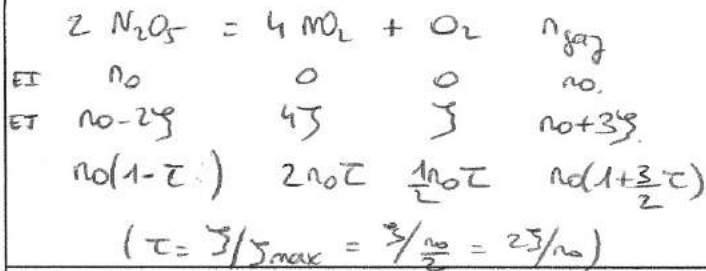 2 N₂O₅ = 4 NO₂ + O₂ n_gaz
EI n₀ 0 0 n₀.
ET n₀-2ξ 4ξ ξ n₀+3ξ.
n₀(1-τ) 2n₀τ 1/2 n₀τ n₀(1+3/2 τ)
(τ = ξ/ξmax = ξ/(n₀/2) = 2ξ/n₀)